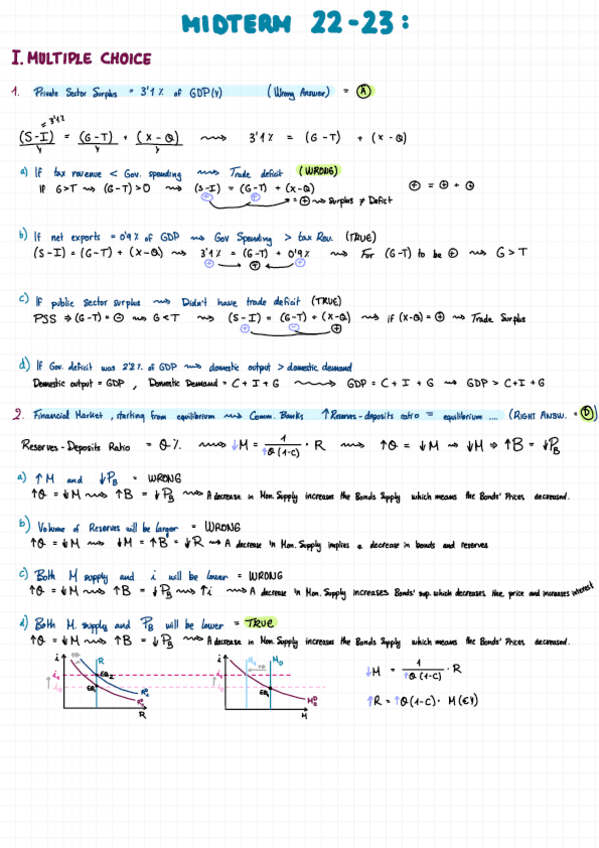 MIDTERM 22-23:
I. MULTIPLE CHOICE
1. Private Sector Surplus = 3'1% of GDP(Y) (Wrong Answer) = A
= 3'1%
(S-I)/Y = (G-T)/Y + (X-Q)/Y ⟿ 3'1% = (G-T) + (X-Q)
a) If tax revenue < Gov. spending ⟿ Trade deficit (WRONG)
If G>T ⟿ (G-T)>0 ⟿ (S-I) = (G-T) + (X-Q) ⊕ = ⊕ + ⊕
⊕ ⊕ = ⊕ ⟿ Surplus ≠ Deficit
b) If net exports = 0'9% of GDP ⟿ Gov Spending > tax Rev. (TRUE)
(S-I) = (G-T) + (X-Q) ⟿ 3'1% = (G-T) + 0'9% ⟿ For (G-T) to be ⊕ ⟿ G>T
⊕ ⊕ ⊕
c) If public sector surplus ⟿ Didn't have trade deficit (TRUE)
PSS ⇒ (G-T) = ⊖ ⟿ G<T ⟿ (S-I) = (G-T) + (X-Q) ⟿ if (X-Q) = ⊕ ⟿ Trade Surplus
⊕ ⊖ ⊕
d) If Gov. deficit was 2'2% of GDP ⟿ domestic output > domestic demand
Domestic output = GDP , Domestic Demand = C + I + G ⟿ GDP = C + I + G ⟿ GDP > C+I+G
2. Financial Market, starting from equilibrium ⟿ Comm. Banks ↑Reserves-deposits ratio = equilibrium .... (RIGHT ANSW. = D)
Reserves-Deposits Ratio = θ% ⟿ ↓M = 1/(↑θ(1-c)) · R ⟿ ↑θ = ↓M ⟿ ↓M ⇒ ↑B = ↓P_B
a) ↑M and ↓P_B = WRONG
↑θ = ↓M ⟿ ↑B = ↓P_B ⟿ A decrease in Mon. Supply increases the Bonds Supply which means the Bonds' Prices decreased.
b) Volume of Reserves will be larger = WRONG
↑θ = ↓M ⟿ ↓M = ↑B = ↓R ⟿ A decrease in Mon. Supply implies a decrease in bonds and reserves
c) Both M supply and i will be lower = WRONG
↑θ = ↓M ⟿ ↑B = ↓P_B ⟿ ↑i ⟿ A decrease in Mon. Supply increases Bonds' sup. which decreases the price and increases interest
d) Both M. supply and P_B will be lower = TRUE
↑θ = ↓M ⟿ ↑B = ↓P_B ⟿ A decrease in Mon. Supply increases the Bonds Supply which means the Bonds' Prices decreased.
i R i
R
M
↓M = 1/(↑θ(1-c)) · R
↑R = ↑θ(1-c) · M(€Y)